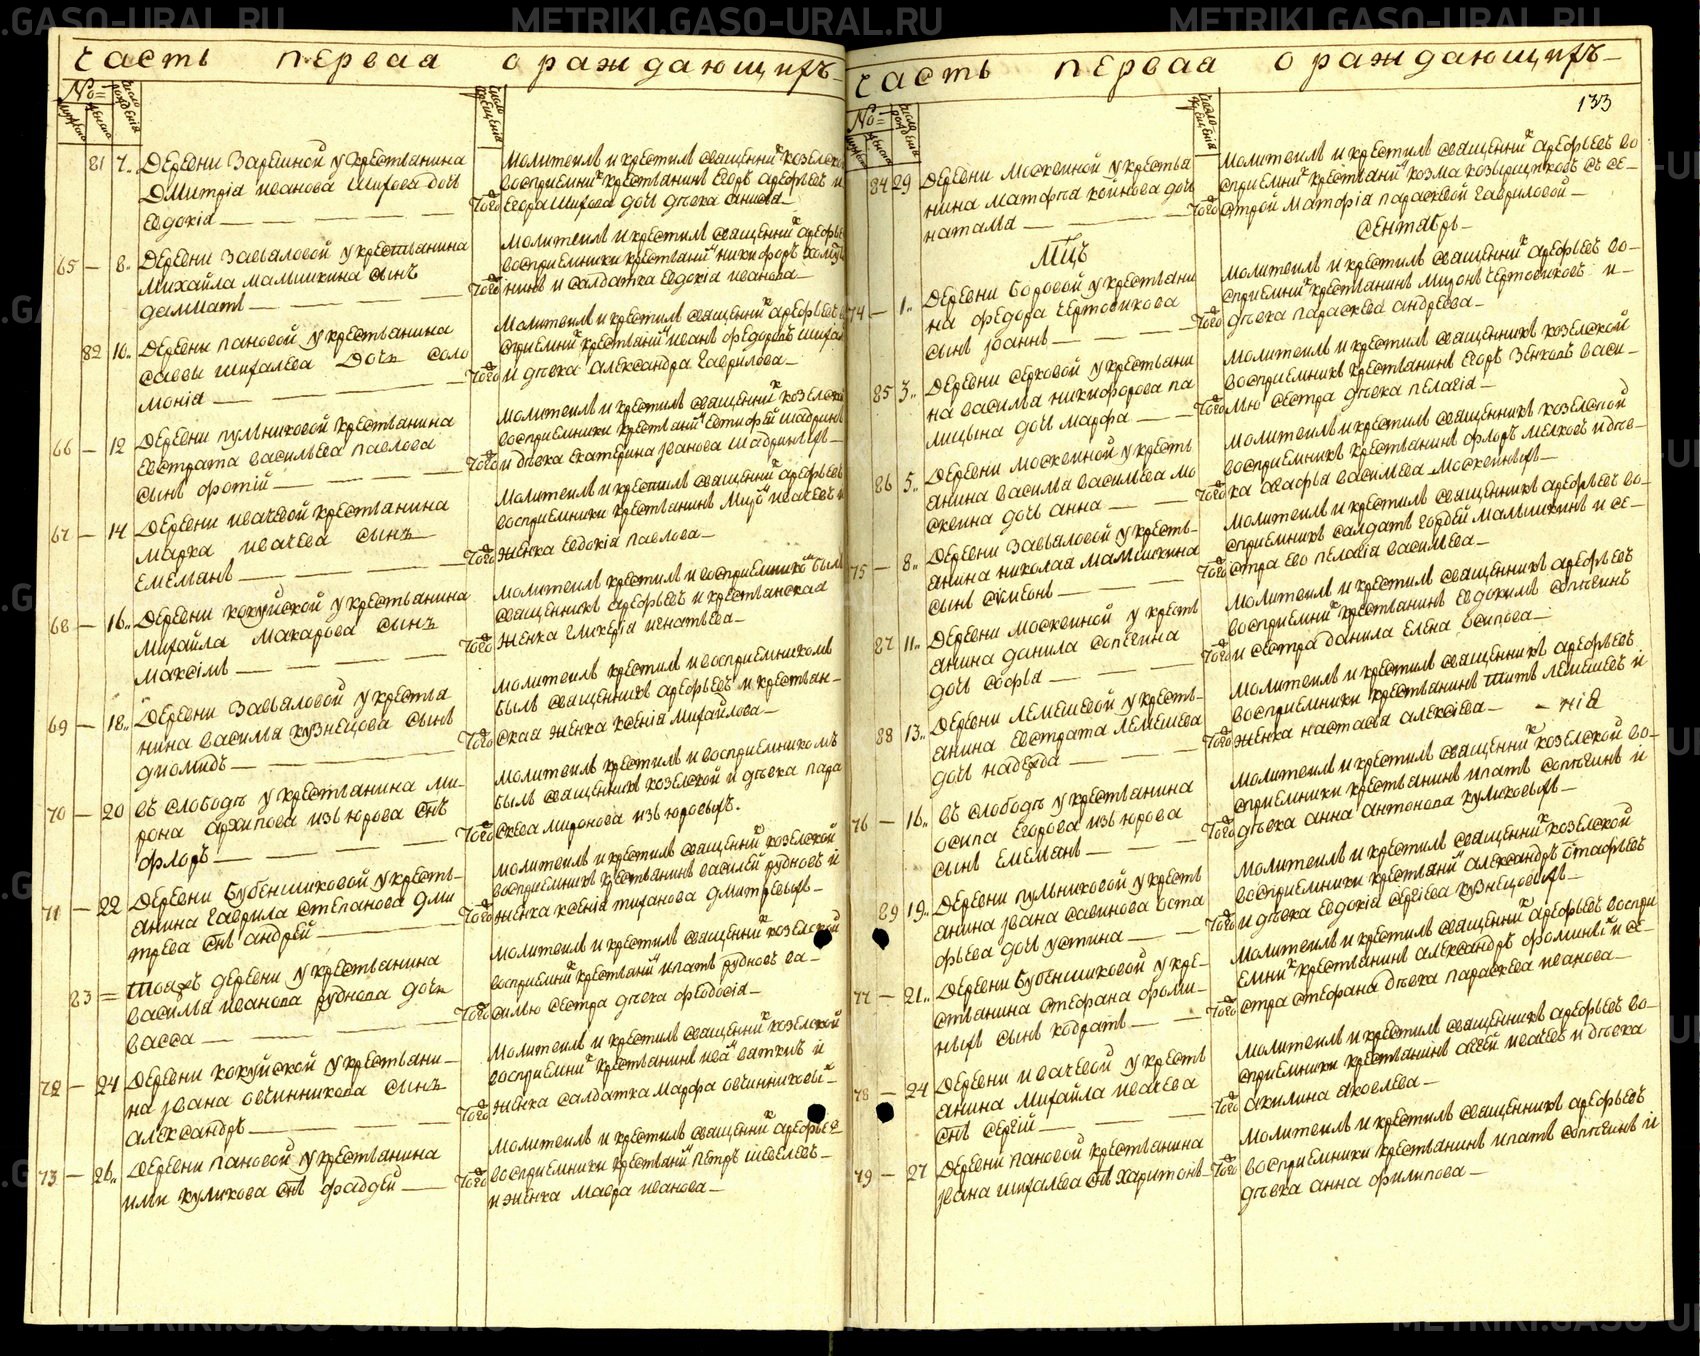 METRIKI.GASO-URAL.RU
METRIKI.GASO-URAL.RU
часть первая ораждающихъ
№
мужеска
женска
число рождения
число крещения
81 7. деревни Заречной у крестьянина
Дмитрія иванова дочь
евдокія
того
молитвилъ и крестилъ священник козелской
восприемник крестьянинъ егоръ арефьевъ и
егора дочь девка анисья
65 — 8. деревни завьяловой у крестьянина
михайла малышкина сынъ
далматъ
того
молитвилъ и крестилъ священник арефьев
восприемники крестьянин никифоръ
и салдатка евдокія иванова
82 10. деревни пановой у крестьянина
саввы шихалева дочь соло
монія
того
молитвилъ и крестилъ священник арефьевъ
сприемник крестьянин иванъ федоровъ
и девка александра гаврилова
66 — 12 деревни пульниковой крестьянина
евстрата васильева павлова
сынъ фотій
того
молитвилъ и крестилъ священник козелской
восприемники крестьянин евтифей шадринъ
и девка екатерина іванова шадриныхъ
67 — 14 деревни ивачевой крестьянина
марка ивачева сынъ
емельянъ
того
молитвилъ и крестилъ священник арефьевъ
восприемники крестьянинъ ивачевъ и
женка евдокія павлова
68 — 16. деревни кокуйской у крестьянина
михайла макарова сынъ
максімъ
того
молитвилъ крестилъ и восприемником былъ
священникъ арефьевъ и крестьянская
женка гликерія игнатьева
69 — 18. деревни завьяловой у крестья
нина василья кузнецова сынъ
диомидъ
того
молитвилъ крестилъ и восприемникомъ
былъ священникъ арефьевъ и крестьян
ская женка ксенія михайлова
70 — 20 въ слободе у крестьянина ми
рона архипова изьюрова снъ
флоръ
того
молитвилъ крестилъ и восприемникомъ
былъ священникъ козелской и девка пара
скева миронова изьюровыхъ.
71 — 22 деревни бубенщиковой у кресть
анина гаврила степанова дми
трева снъ андрей
того
молитвилъ и крестилъ священник козелской
восприемникъ крестьянинъ василей рудновъ и
женка ксенія дмитревыхъ
83 = деревни у крестьянина
василья иванова руднова дочь
васса
того
молитвилъ и крестилъ священник козелской
восприемник крестьянин ипатъ рудновъ ва
силью сестра девка феодосія
72 — 24 деревни кокуйской у крестьяни
на івана овчинникова сынъ
александръ
того
молитвилъ и крестилъ священник козелской
восприемник крестьянинъ иван вяткинъ и
женка салдатка марфа овчинниковы
73 — 26. деревни пановой у крестьянина
ильи куликова снъ фаддей
того
молитвилъ и крестилъ священник арефьев
восприемники крестьянин петръ шевелевъ
и женка мавра иванова
часть первая ораждающихъ
133
№
мужеска
женска
число рождения
число крещения
84 29 деревни москвиной у крестья
нина матфъя койнова дочь
наталья
того
молитвилъ и крестилъ священник арефьевъ во
сприемник крестьянин козма козырщиковъ съ се
строй матфія параскевой гавриловой
мцъ сентябрь
74 — 1. деревни боровой у крестьяни
на федора чертовикова
сынъ іоаннъ
того
молитвилъ и крестилъ священник арефьевъ во
сприемник крестьянинъ миронъ чертовиковъ и
девка параскева андреева
85 3. деревни серковой у крестьяни
на василья никифорова па
лицына дочь марфа
того
молитвилъ и крестилъ священникъ козелской
восприемникъ крестьянинъ егоръ зенковъ васи
лью сестра девка пелагія
86 5. деревни москвиной у кресть
анина василья васильева мо
сквина дочь анна
того
молитвилъ и крестилъ священникъ козелской
восприемникъ крестьянинъ флоръ мелковъ и дев
ка агафья васильева москвиныхъ
75 — 8. деревни завьяловой у кресть
анина николая малышкина
сынъ сумеонъ
того
молитвилъ и крестилъ священникъ арефьевъ во
сприемникъ салдатъ гордей малышкинъ и се
стра ево пелагія васильева
87 11. деревни москвиной у кресть
анина данила сопегина
дочь софья
того
молитвилъ и крестилъ священникъ арефьевъ
восприемник крестьянинъ евдокимъ сопегинъ
и сестра данила елена осипова
88 13. деревни лемешевой у кресть
анина евстрата лемешева
дочь надежда
того
молитвилъ и крестилъ священникъ арефьевъ
восприемники крестьянинъ титъ лемешевъ и
женка настасья алексіева — нія
76 — 16. въ слободе у крестьянина
осипа егорова изьюрова
сынъ емельянъ
того
молитвилъ и крестилъ священник козелской во
сприемники крестьянинъ ипатъ сопегинъ и
девка анна антонова куликовыхъ
89 19. деревни пульниковой у кресть
анина івана савинова оста
фьева дочь устина
того
молитвилъ и крестилъ священник козелской
восприемники крестьянин александръ остафьевъ
и девка евдокія сергіева кузнецовыхъ
77 — 21. деревни бубенщиковой у кре
стьянина стефана фоми
ныхъ сынъ кодратъ
того
молитвилъ и крестилъ священник арефьевъ воспри
емник крестьянинъ александръ фоминых и се
стра стефана девка параскева иванова
78 — 24 деревни ивачевой у кресть
анина михайла ивачева
снъ сергій
того
молитвилъ и крестилъ священникъ арефьевъ во
сприемники крестьянинъ ивачевъ и девка
акилина яковлева
79 — 27 деревни пановой крестьянина
івана шихалева снъ харитонъ
того
молитвилъ и крестилъ священникъ арефьевъ
восприемники крестьянинъ ипатъ сопегинъ и
девка анна филипова
METRIKI.GASO-URAL.RU